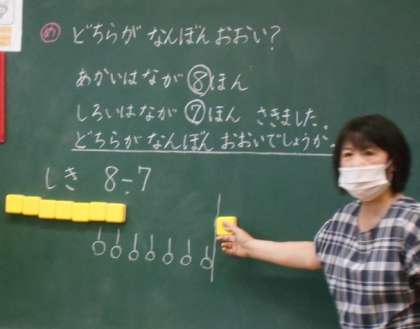 め どちらが なんぼん おおい?
あかいはなが 8 ほん
しろいはなが 7 ほん さきました。
どちらが なんぼん おおいでしょうか。
しき 8-7